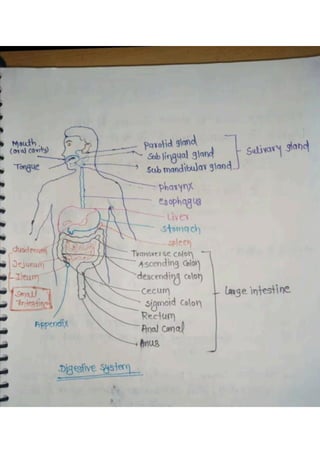 Mouth
(oral cavity)
Tongue
Parotid gland
Sublingual gland
Submandibular gland
Salivary gland
Pharynx
Esophagus
Liver
Stomach
Spleen
Duodenum
Jejunum
Ileum
Small
Intestine
Appendix
Transverse colon
Ascending colon
descending colon
Cecum
Sigmoid colon
Rectum
Anal Canal
Anus
Large intestine
Digestive System